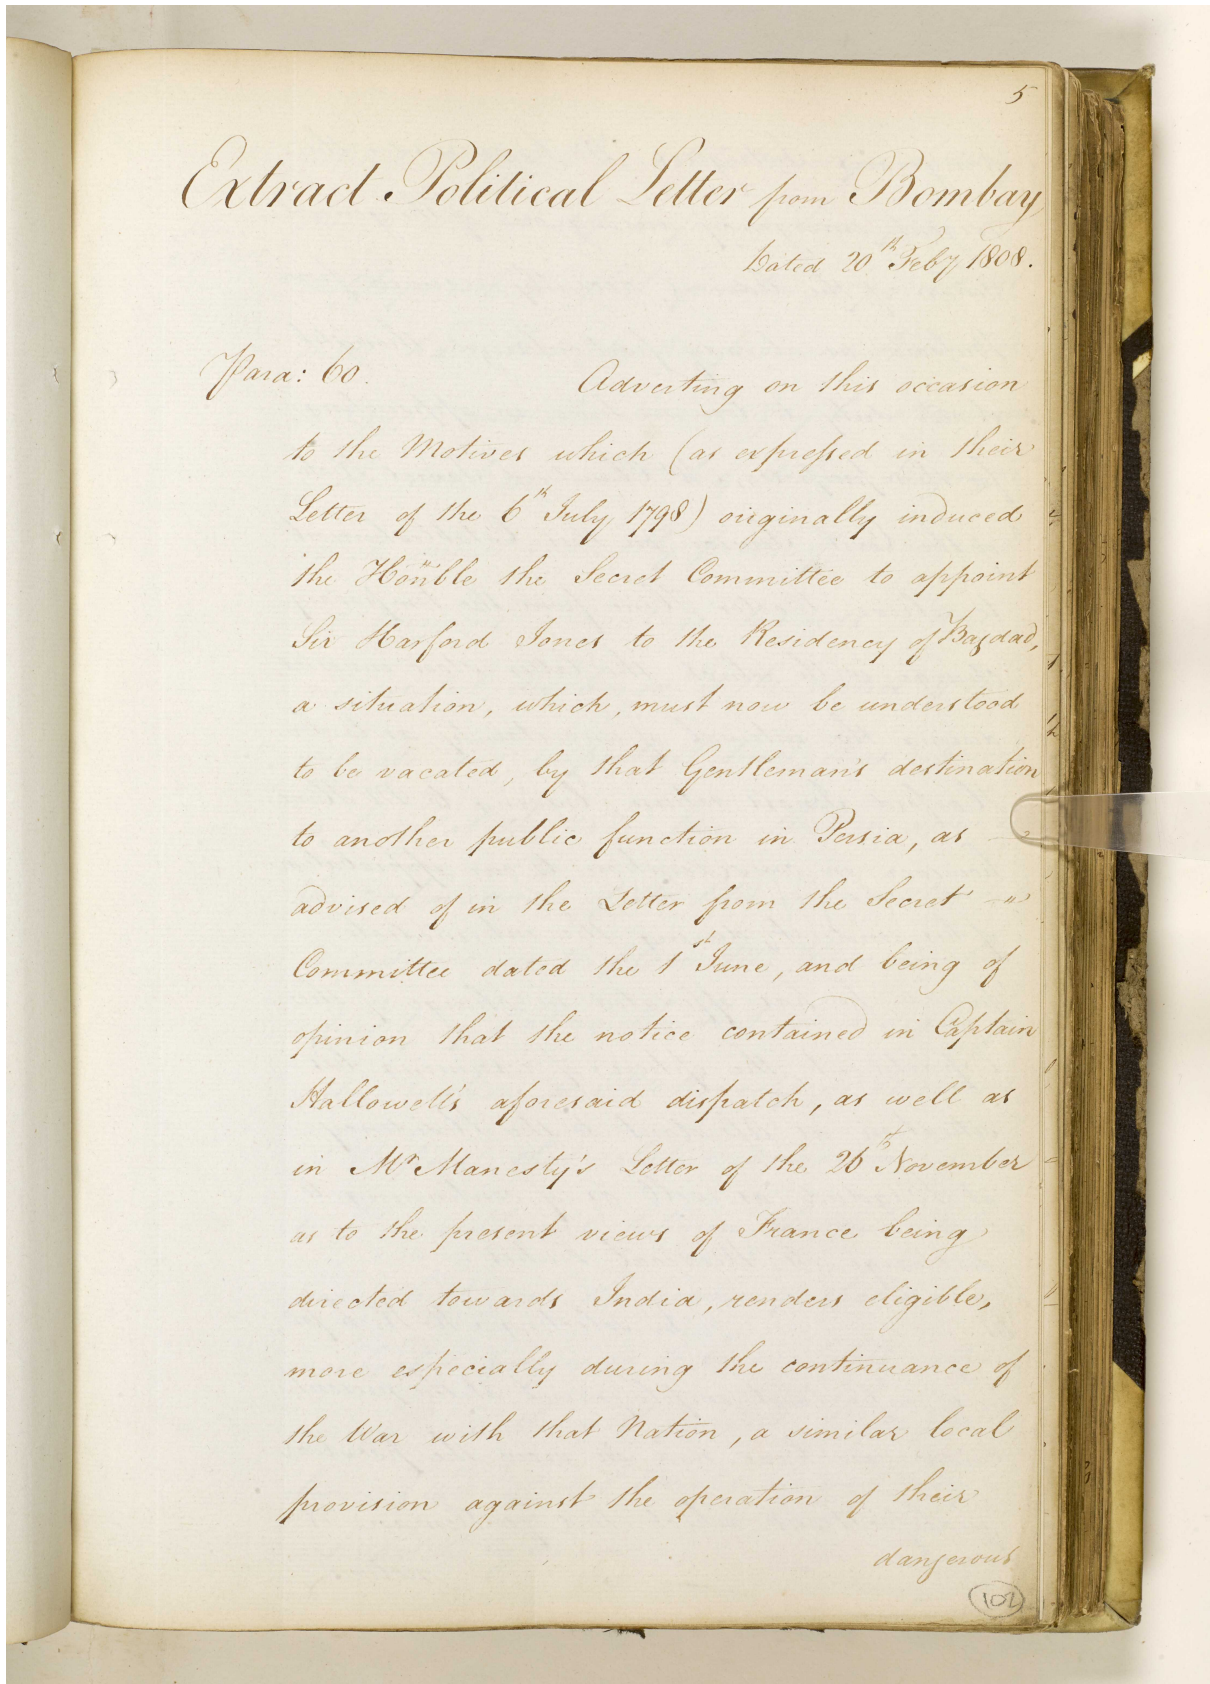 5
Extract Political Letter from Bombay
Dated 20th Feby 1808.
Para: 60. Adverting on this occasion
to the Motives which (as expressed in their
Letter of the 6th July 1798) originally induced
the Honble the Secret Committee to appoint
Sir Harford Jones to the Residency of Bagdad,
a situation, which, must now be understood
to be vacated, by that Gentleman's destination
to another public function in Persia, as
advised of in the Letter from the Secret
Committee dated the 1st June, and being of
opinion that the notice contained in Captain
Hallowell's aforesaid dispatch, as well as
in Mr Manesty's Letter of the 26th November
as to the present views of France being
directed towards India, renders eligible,
more especially during the continuance of
the War with that Nation, a similar local
provision against the operation of their
dangerous
102